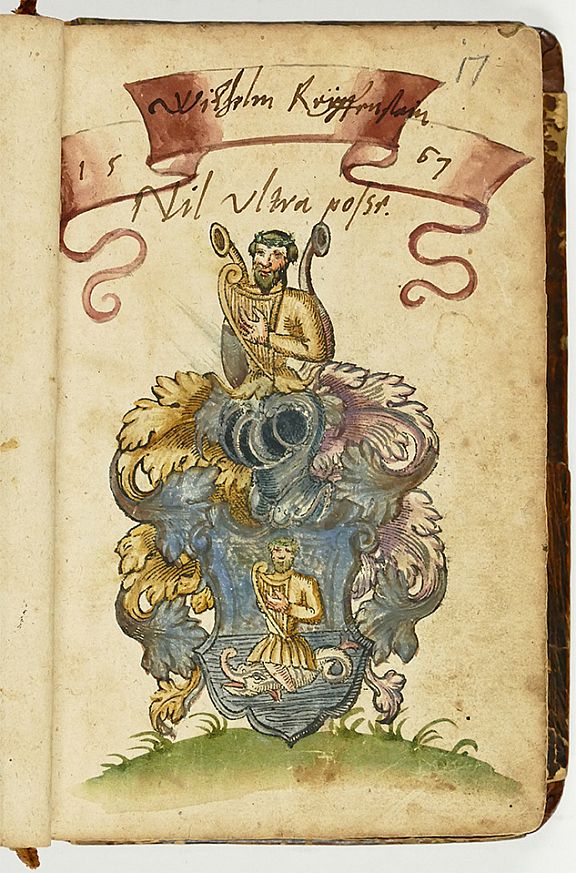 17
Wilhelm Reyffenstein
15 67
Nil vltra posse.